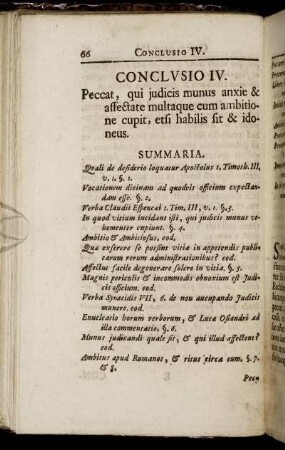 66 CONCLUSIO IV.
CONCLVSIO IV.
Peccat, qui judicis munus anxie &
affectate multaque cum ambitio-
ne cupit, etsi habilis sit & ido-
neus.
SUMMARIA.
Quali de desiderio loquatur Apostolus 1. Timoth. III,
v. 1. §. 1.
Vocationem divinam ad quodvis officium expectan-
dam esse. §. 2.
Verba Claudii Espencæi 1. Tim, III, v. 1. §. 3.
In quod vitium incidant isti, qui judicis munus ve-
hementer cupiunt. §. 4.
Ambitio & Ambitiosus, eod.
Qua exserere se possint vitia in appetendis publi-
carum rerum administrationibus? eod.
Affectus facile degenerare solere in vitia. §. 5.
Magnis periculis & incommodis obnoxium est Judi-
cis officium. eod.
Verba Syracidis VII, 6. de non aucupando Judicis
munere. eod.
Enucleatio horum verborum, & Lucæ Osiandri ad
illa commentatio. §. 6.
Munus judicandi quale sit, & qui illud affectent?
eod.
Ambitus apud Romanos, & ritus circa eum. §. 7.
& 8.
Pecca